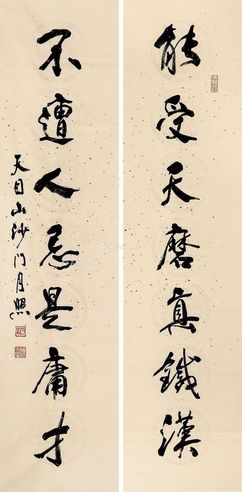 能受天磨真鐵漢
不遭人忌是庸才
天目山沙门月照